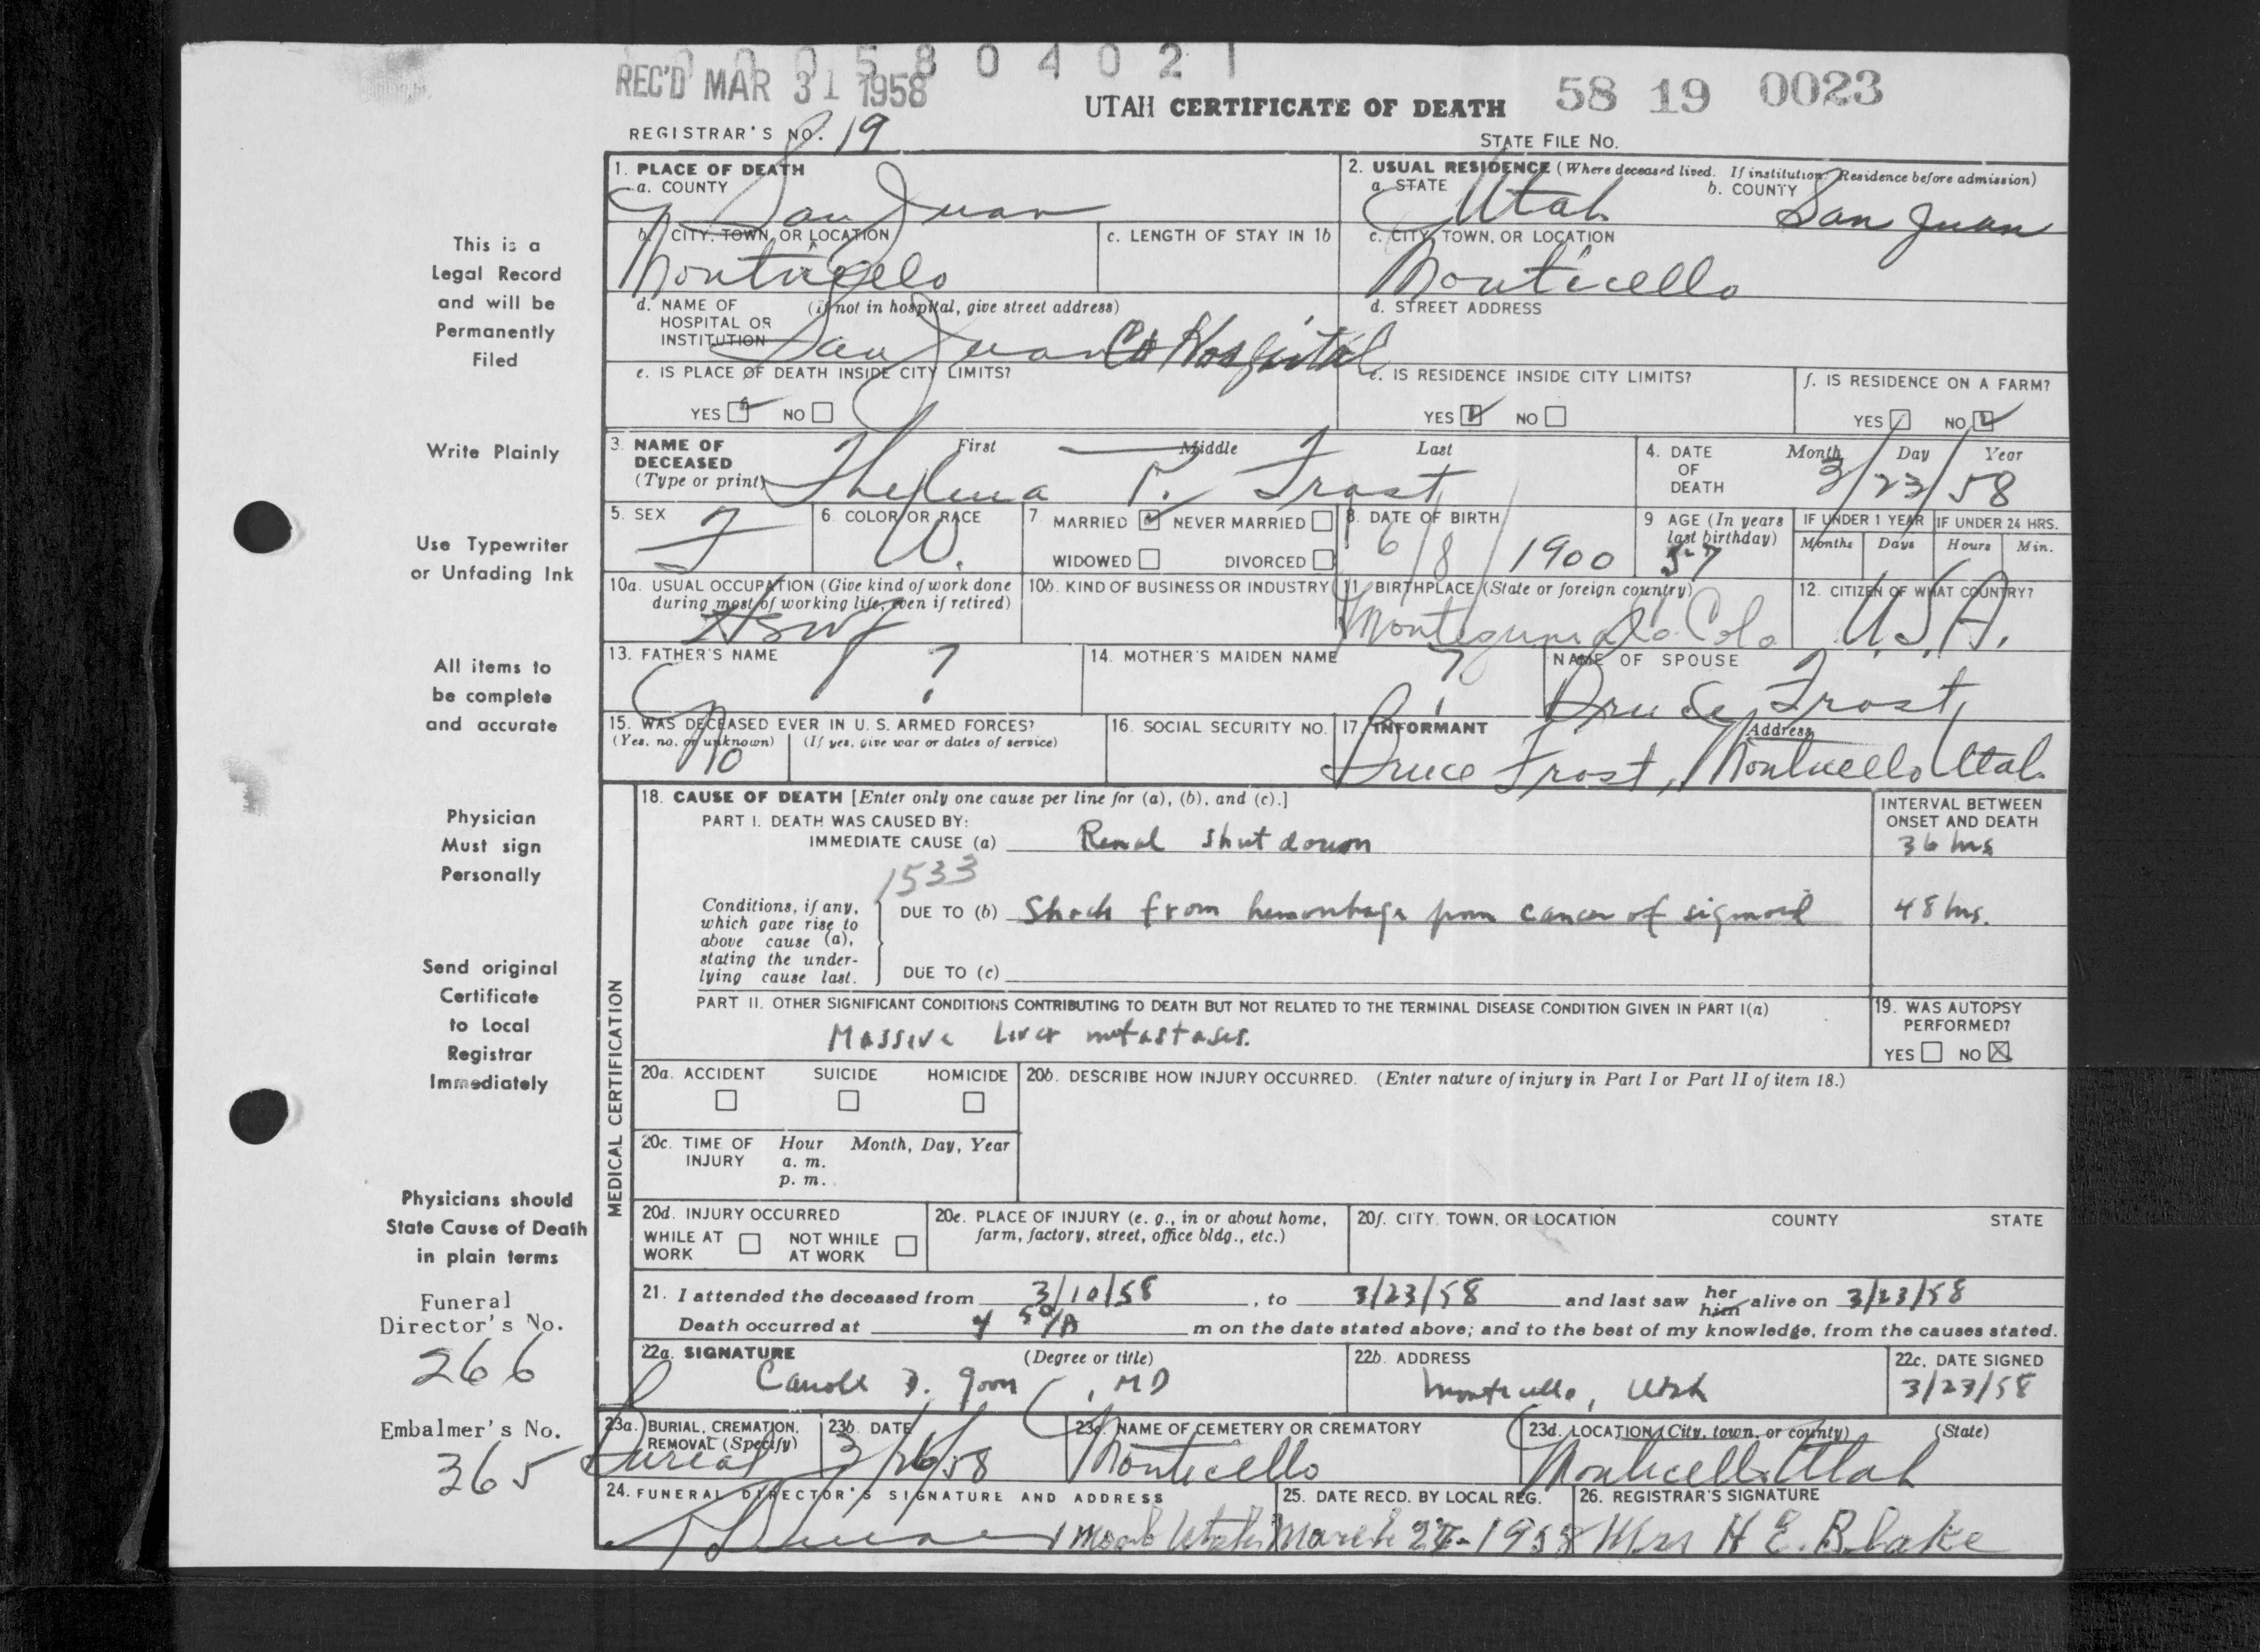 0 0 0 5 8 0 4 0 2 1
REC'D MAR 31 1958
UTAH CERTIFICATE OF DEATH
58 19 0023
REGISTRAR'S NO. 19
STATE FILE NO.
1. PLACE OF DEATH
a. COUNTY
San Juan
2. USUAL RESIDENCE (Where deceased lived. If institution: Residence before admission)
a. STATE
Utah
b. COUNTY
San Juan
b. CITY, TOWN, OR LOCATION
Monticello
c. LENGTH OF STAY IN 1b
c. CITY, TOWN, OR LOCATION
Monticello
d. NAME OF HOSPITAL OR INSTITUTION
(if not in hospital, give street address)
San Juan Co Hospital
d. STREET ADDRESS
e. IS PLACE OF DEATH INSIDE CITY LIMITS?
YES NO
e. IS RESIDENCE INSIDE CITY LIMITS?
YES NO
f. IS RESIDENCE ON A FARM?
YES NO
3. NAME OF DECEASED
(Type or print)
First Middle Last
Thelma P. Frost
4. DATE OF DEATH
Month Day Year
3/23/58
5. SEX
F
6. COLOR OR RACE
W.
7. MARRIED NEVER MARRIED
WIDOWED DIVORCED
8. DATE OF BIRTH
6/8/1900
9 AGE (In years last birthday)
57
IF UNDER 1 YEAR
Months Days
IF UNDER 24 HRS.
Hours Min.
10a. USUAL OCCUPATION (Give kind of work done during most of working life, even if retired)
Hswf
10b. KIND OF BUSINESS OR INDUSTRY
11. BIRTHPLACE (State or foreign country)
Colo
12. CITIZEN OF WHAT COUNTRY?
U.S.A.
13. FATHER'S NAME
?
14. MOTHER'S MAIDEN NAME
?
NAME OF SPOUSE
Bruce Frost
15. WAS DECEASED EVER IN U. S. ARMED FORCES?
(Yes, no, or unknown) (If yes, give war or dates of service)
No
16. SOCIAL SECURITY NO.
17. INFORMANT
Address
Bruce Frost, Monticello Utah
MEDICAL CERTIFICATION
18. CAUSE OF DEATH [Enter only one cause per line for (a), (b), and (c).]
PART I. DEATH WAS CAUSED BY:
IMMEDIATE CAUSE (a) Renal Shut down
INTERVAL BETWEEN ONSET AND DEATH
36 hrs
1533
Conditions, if any, which gave rise to above cause (a), stating the underlying cause last.
DUE TO (b) Shock from hemorrhage from cancer of sigmoid
48 hrs.
DUE TO (c)
PART II. OTHER SIGNIFICANT CONDITIONS CONTRIBUTING TO DEATH BUT NOT RELATED TO THE TERMINAL DISEASE CONDITION GIVEN IN PART I(a)
Massive Liver metastases.
19. WAS AUTOPSY PERFORMED?
YES NO
20a. ACCIDENT SUICIDE HOMICIDE
20b. DESCRIBE HOW INJURY OCCURRED. (Enter nature of injury in Part I or Part II of item 18.)
20c. TIME OF INJURY
Hour Month, Day, Year
a. m.
p. m.
20d. INJURY OCCURRED
WHILE AT WORK NOT WHILE AT WORK
20e. PLACE OF INJURY (e. g., in or about home, farm, factory, street, office bldg., etc.)
20f. CITY, TOWN, OR LOCATION COUNTY STATE
21. I attended the deceased from 3/10/58, to 3/23/58 and last saw her him alive on 3/23/58
Death occurred at 4 50/A m on the date stated above; and to the best of my knowledge, from the causes stated.
22a. SIGNATURE (Degree or title)
D. Goon, MD
22b. ADDRESS
Monticello, Utah
22c. DATE SIGNED
3/23/58
23a. BURIAL, CREMATION, REMOVAL (Specify)
Bureal
23b. DATE
3/26/58
23c. NAME OF CEMETERY OR CREMATORY
Monticello
23d. LOCATION (City, town, or county) (State)
Monticello Utah
24. FUNERAL DIRECTOR'S SIGNATURE AND ADDRESS
Moab Utah
25. DATE RECD. BY LOCAL REG.
March 1958
26. REGISTRAR'S SIGNATURE
Mrs H E. Blake
This is a
Legal Record
and will be
Permanently
Filed
Write Plainly
Use Typewriter
or Unfading Ink
All items to
be complete
and accurate
Physician
Must sign
Personally
Send original
Certificate
to Local
Registrar
Immediately
Physicians should
State Cause of Death
in plain terms
Funeral
Director's No.
266
Embalmer's No.
365